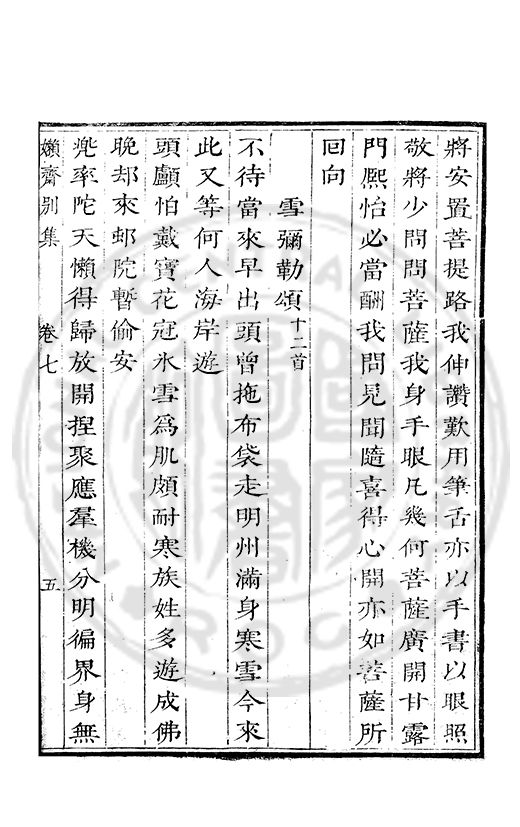 將安置菩提路我伸讚歎用筆舌亦以手書以眼照
敬將少問問菩薩我身手眼凡幾何菩薩廣開甘露
門熈怡必當酬我問見聞隨喜得心開亦如菩薩所
回向
雪彌勒頌十二首
不待當來早出頭曾拖布袋走明州滿身寒雪今來
此又等何人海岸遊
頭顱怕戴寶花冠氷雪爲肌頗耐寒族姓多遊成佛
晚却來邨院暫偷安
兜率陀天懶得歸放開揑聚應羣機分明徧界身無
嬾齋别集
卷七
五